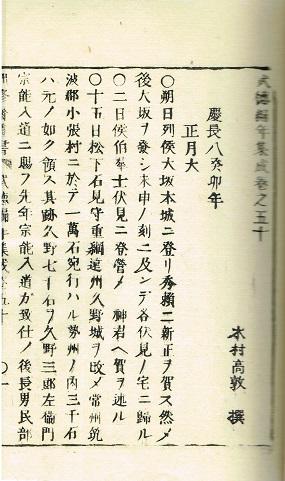 武徳編年集成卷之五十
木村高敦 撰
慶長八癸卯年
正月大
〇朔日列侯大坂本城ニ登リ秀頼ニ新正ヲ賀ス然メ
後大坂ヲ發シ未申ノ刻ニ及ンデ各伏見ノ宅ニ歸ル
〇二日侯伯群士伏見ニ登營メ 神君ヘ賀ヲ述ル
〇十五日松下石見守重綱遠州久野城ヲ改メ常州筑
波郡小張村ニ於テ一萬石宛行ハル勢州ノ内三千石
ハ元ノ如ク領ス其跡久野七千石ヲ久野三郎左衛門
宗能入道ニ賜フ先年宗能入道ガ致仕ノ後長男民部